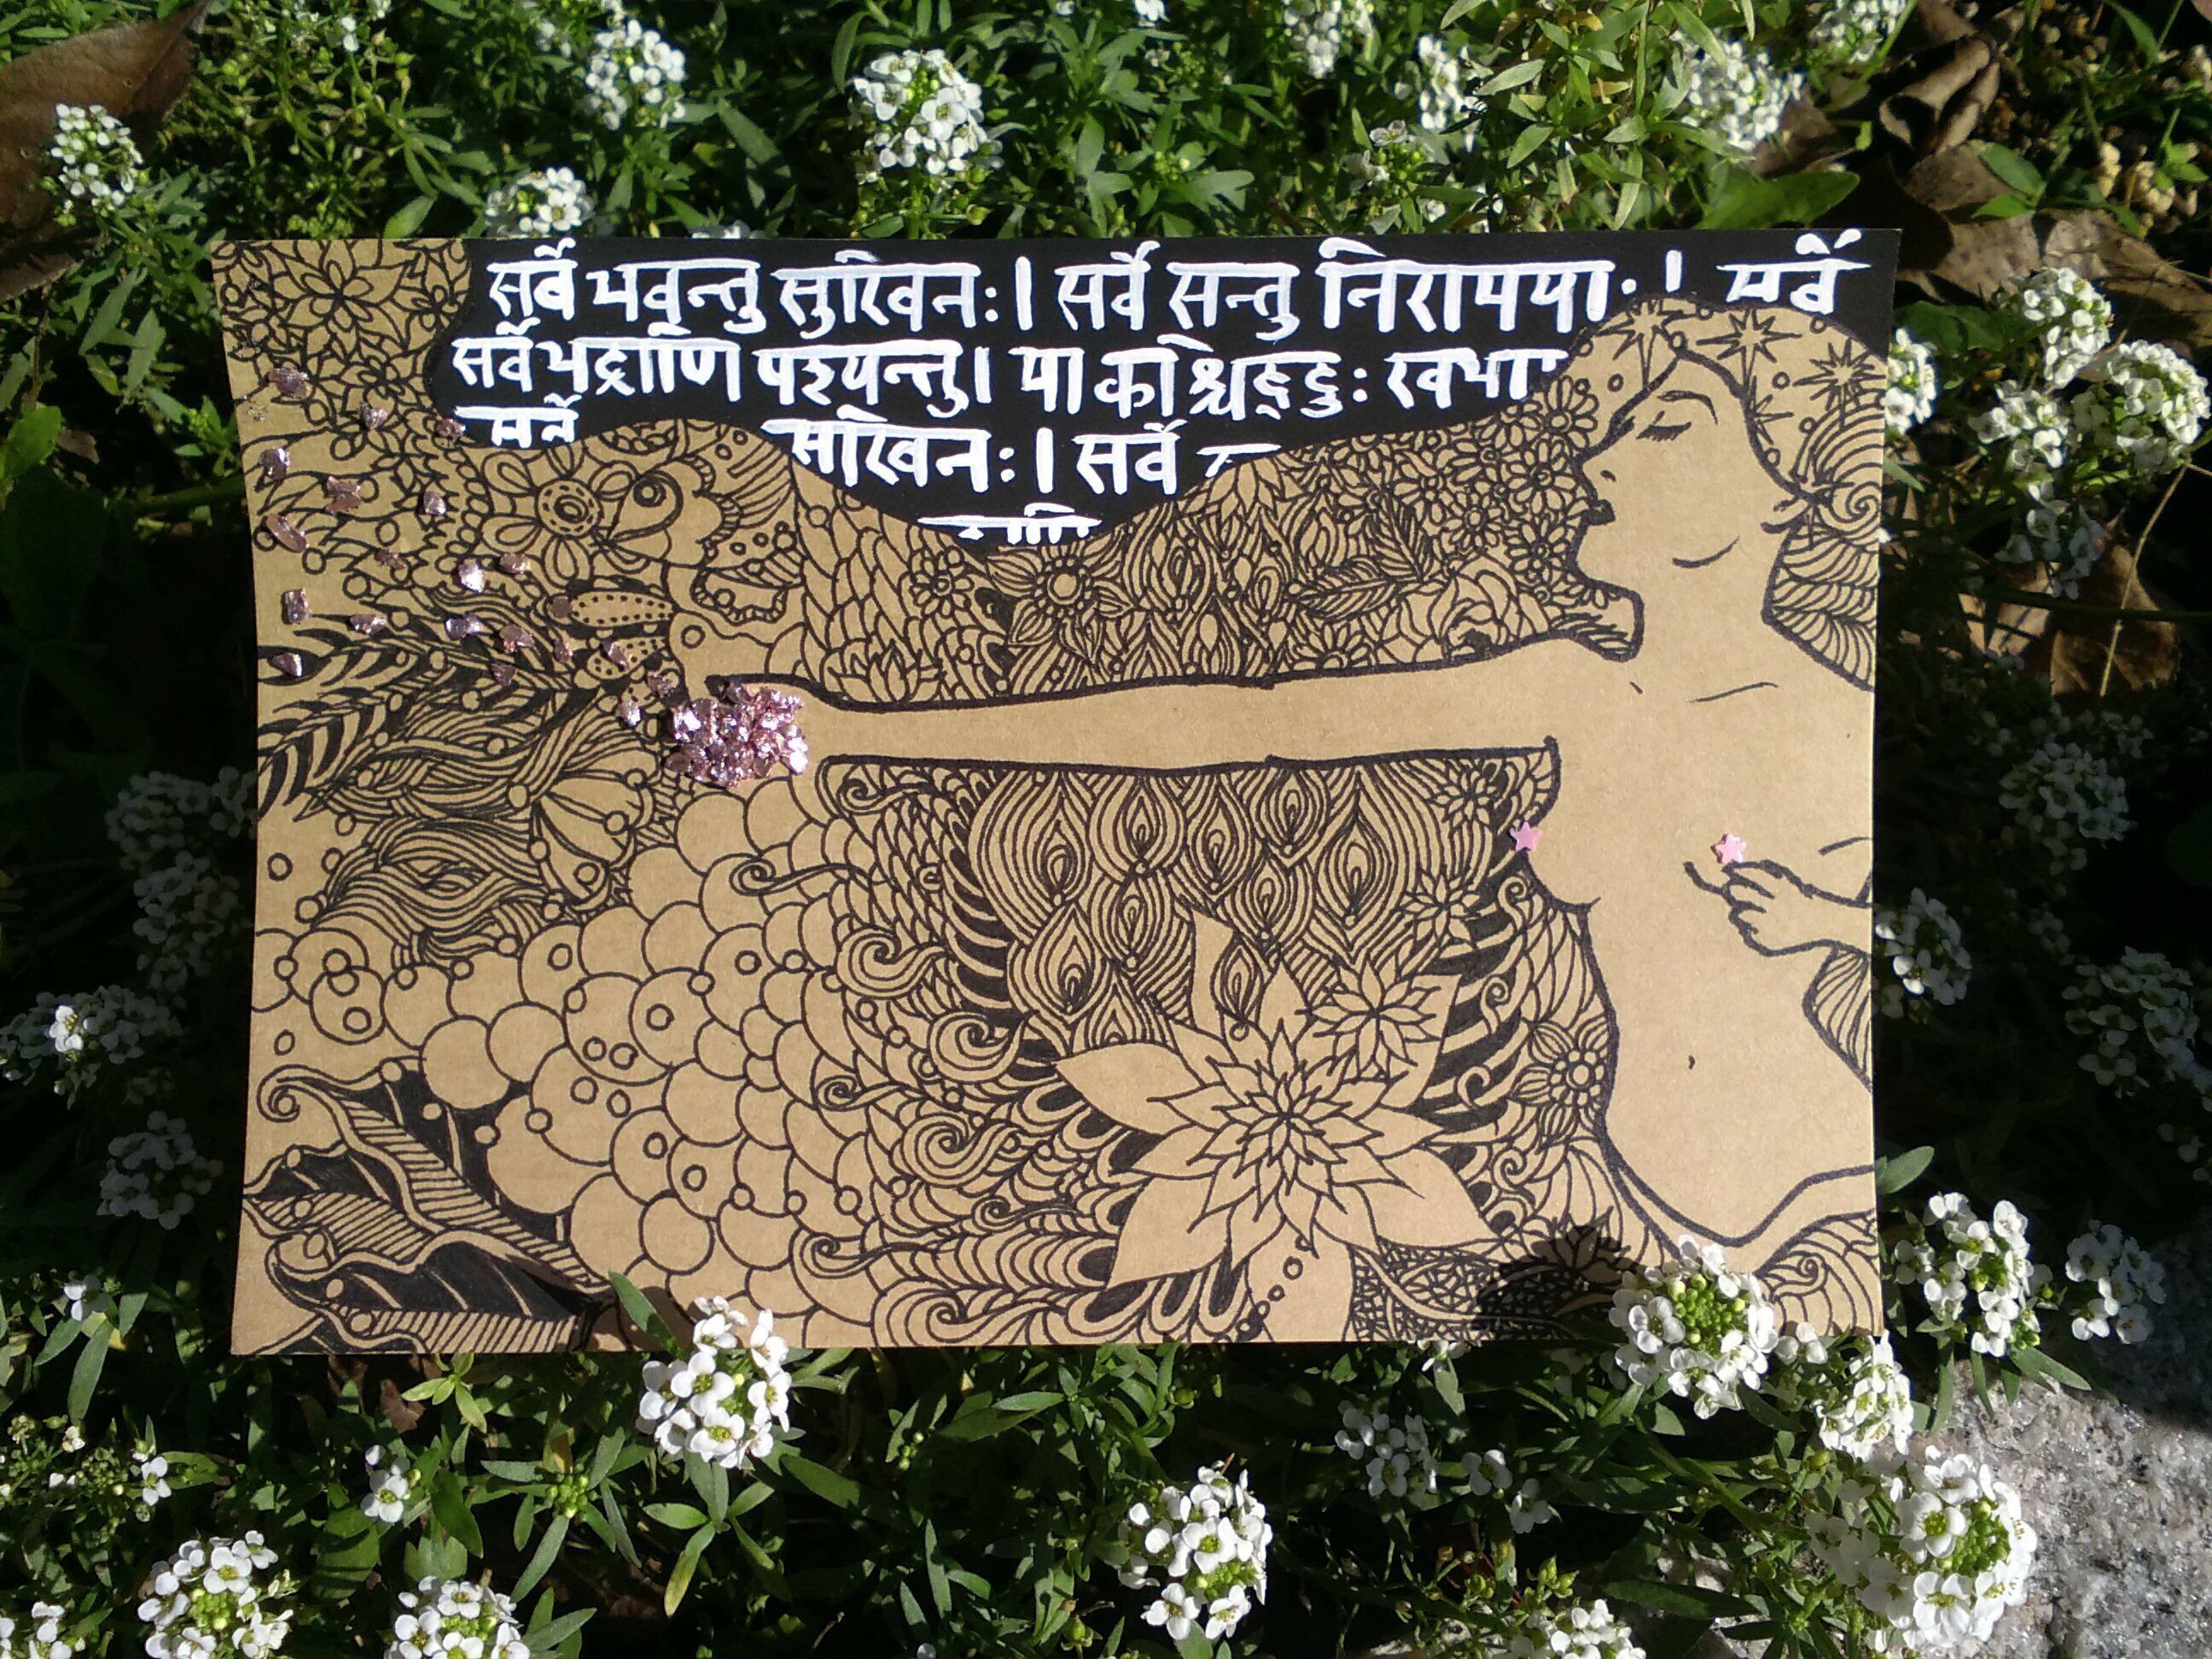 सर्वे भवन्तु सुखिनः। सर्वे सन्तु निरामयाः। सर्वे
सर्वे भद्राणि पश्यन्तु। मा
सर्वे सुखिनः। सर्वे